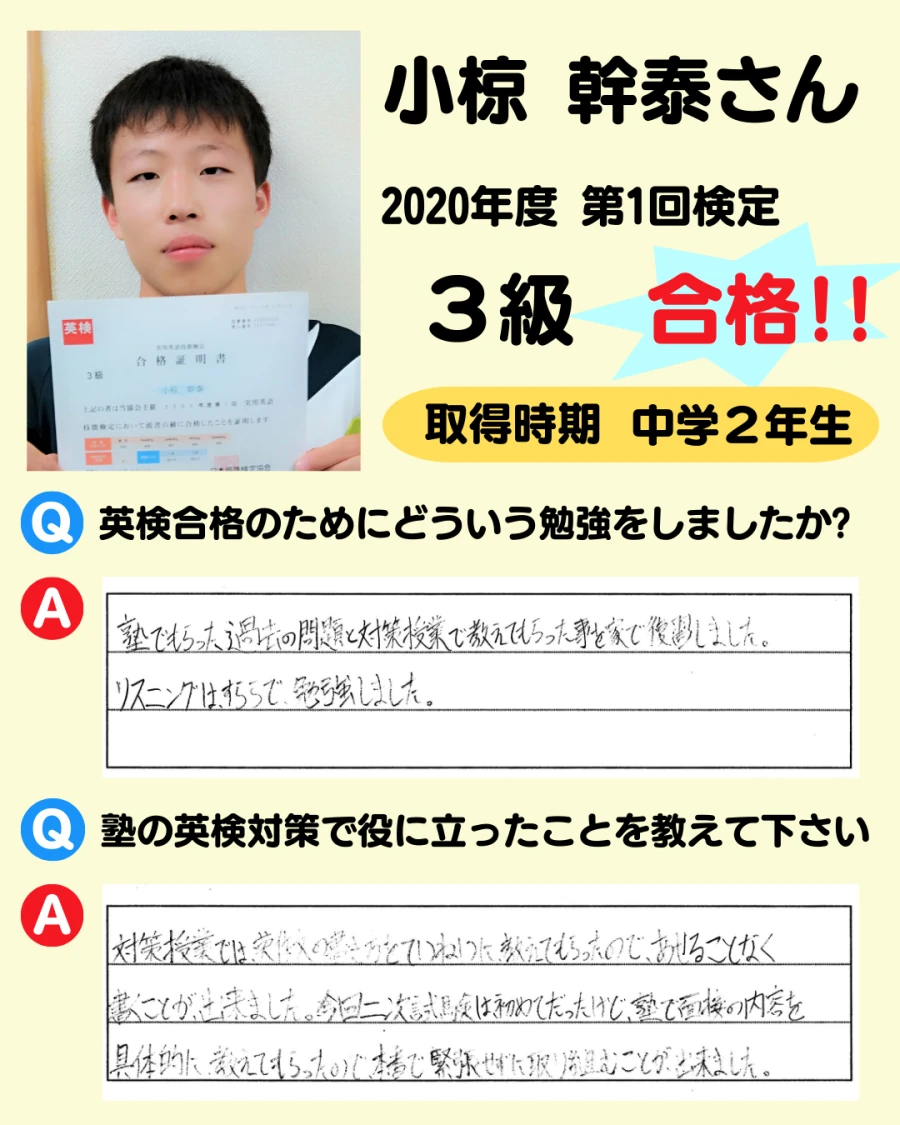 小椋 幹泰さん
2020年度 第1回検定
3級 合格!!
取得時期 中学2年生
英検
合格証明書
3級
小椋 幹泰
技能検定において前書の級に合格したことを証明します
Q 英検合格のためにどういう勉強をしましたか?
A
塾でもらった過去の問題と対策授業で教えてもらった事を家で復習しました。
リスニングは、すららで、勉強しました。
Q 塾の英検対策で役に立ったことを教えて下さい
A
対策授業では英作文の書き方をていねいに教えてもらったので、あせることなく
書くことが、出来ました。今回二次試験は初めてだったけど、塾で面接の内容を
具体的に教えてもらったので本番で緊張せずに取り組むことが出来ました。